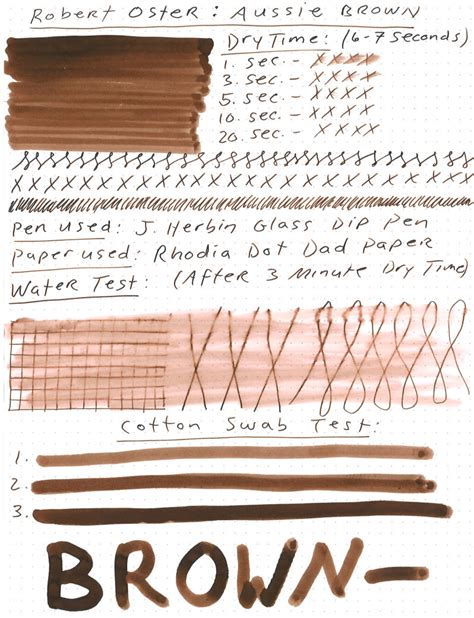 Robert Oster: Aussie Brown
Dry Time: (6-7 Seconds)
1. sec.- x x x x
3. sec.- x x x x
5. sec.- x x x x
10. sec.- x x x x
20. sec.- x x x x
Pen used: J. Herbin Glass Dip Pen
Paper used: Rhodia Dot Dad Paper
Water Test: (After 3 Minute Dry Time)
Cotton Swab Test:
1.
2.
3.
BROWN-